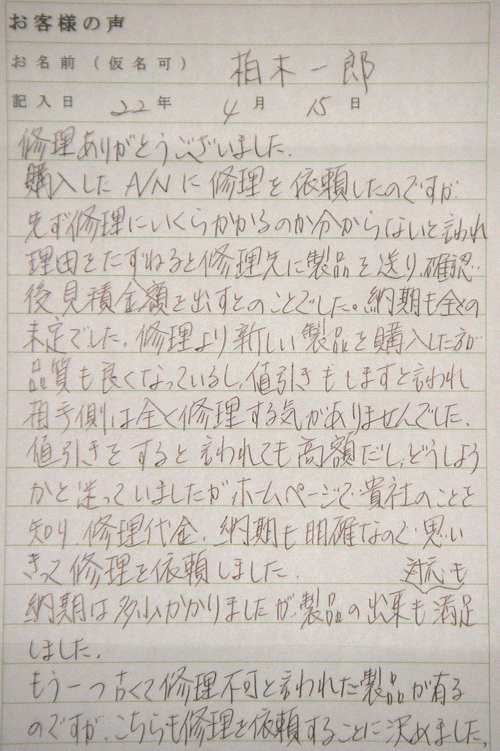 お客様の声
お名前（仮名可） 柏木一郎
記入日 22年 4月 15日
修理ありがとうございました.
購入した A/Nに修理を依頼したのですが
先ず修理にいくらかかるのか分からないと言われ
理由をたずねると修理先に製品を送り、確認
後見積金額を出すとのことでした。納期も全くの
未定でした、修理より新しい製品を購入した方が
品質も良くなっているし、値引きもしますと言われ
相手側は全く修理する気がありませんでした.
値引きをすると言われても高額だし、どうしよう
かと迷っていましたがホームページで貴社のことを
知り 修理代金、納期も明確なので思い
きって修理を依頼しました. 対応も
納期は多少かかりましたが、製品の出来も満足
しました.
もう一つ古くて修理不可と言われた製品が有る
のですが、こちらも修理を依頼することに決めました.